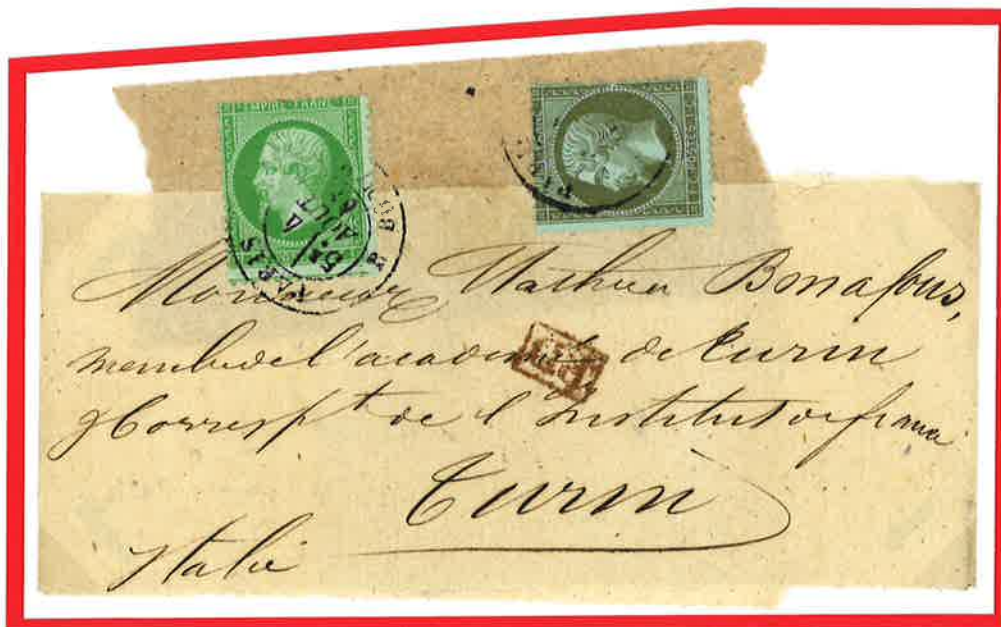 EMPIRE FRANC
POSTES
PARIS
5E
4
AOUT
Monsieur Mathieu Bonafous,
membre de l'academie de turin
& Corresp.t de l'Institut de france
Turin
Italie